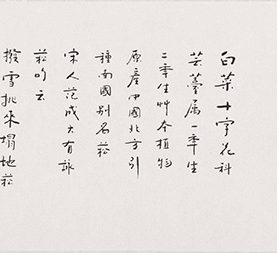 白菜十字花科
芸薹属一年生
二年生草本植物
原产中國北方引
種南國别名菘
宋人范成大有詠
菘吟云
撥雪挑來塌地菘